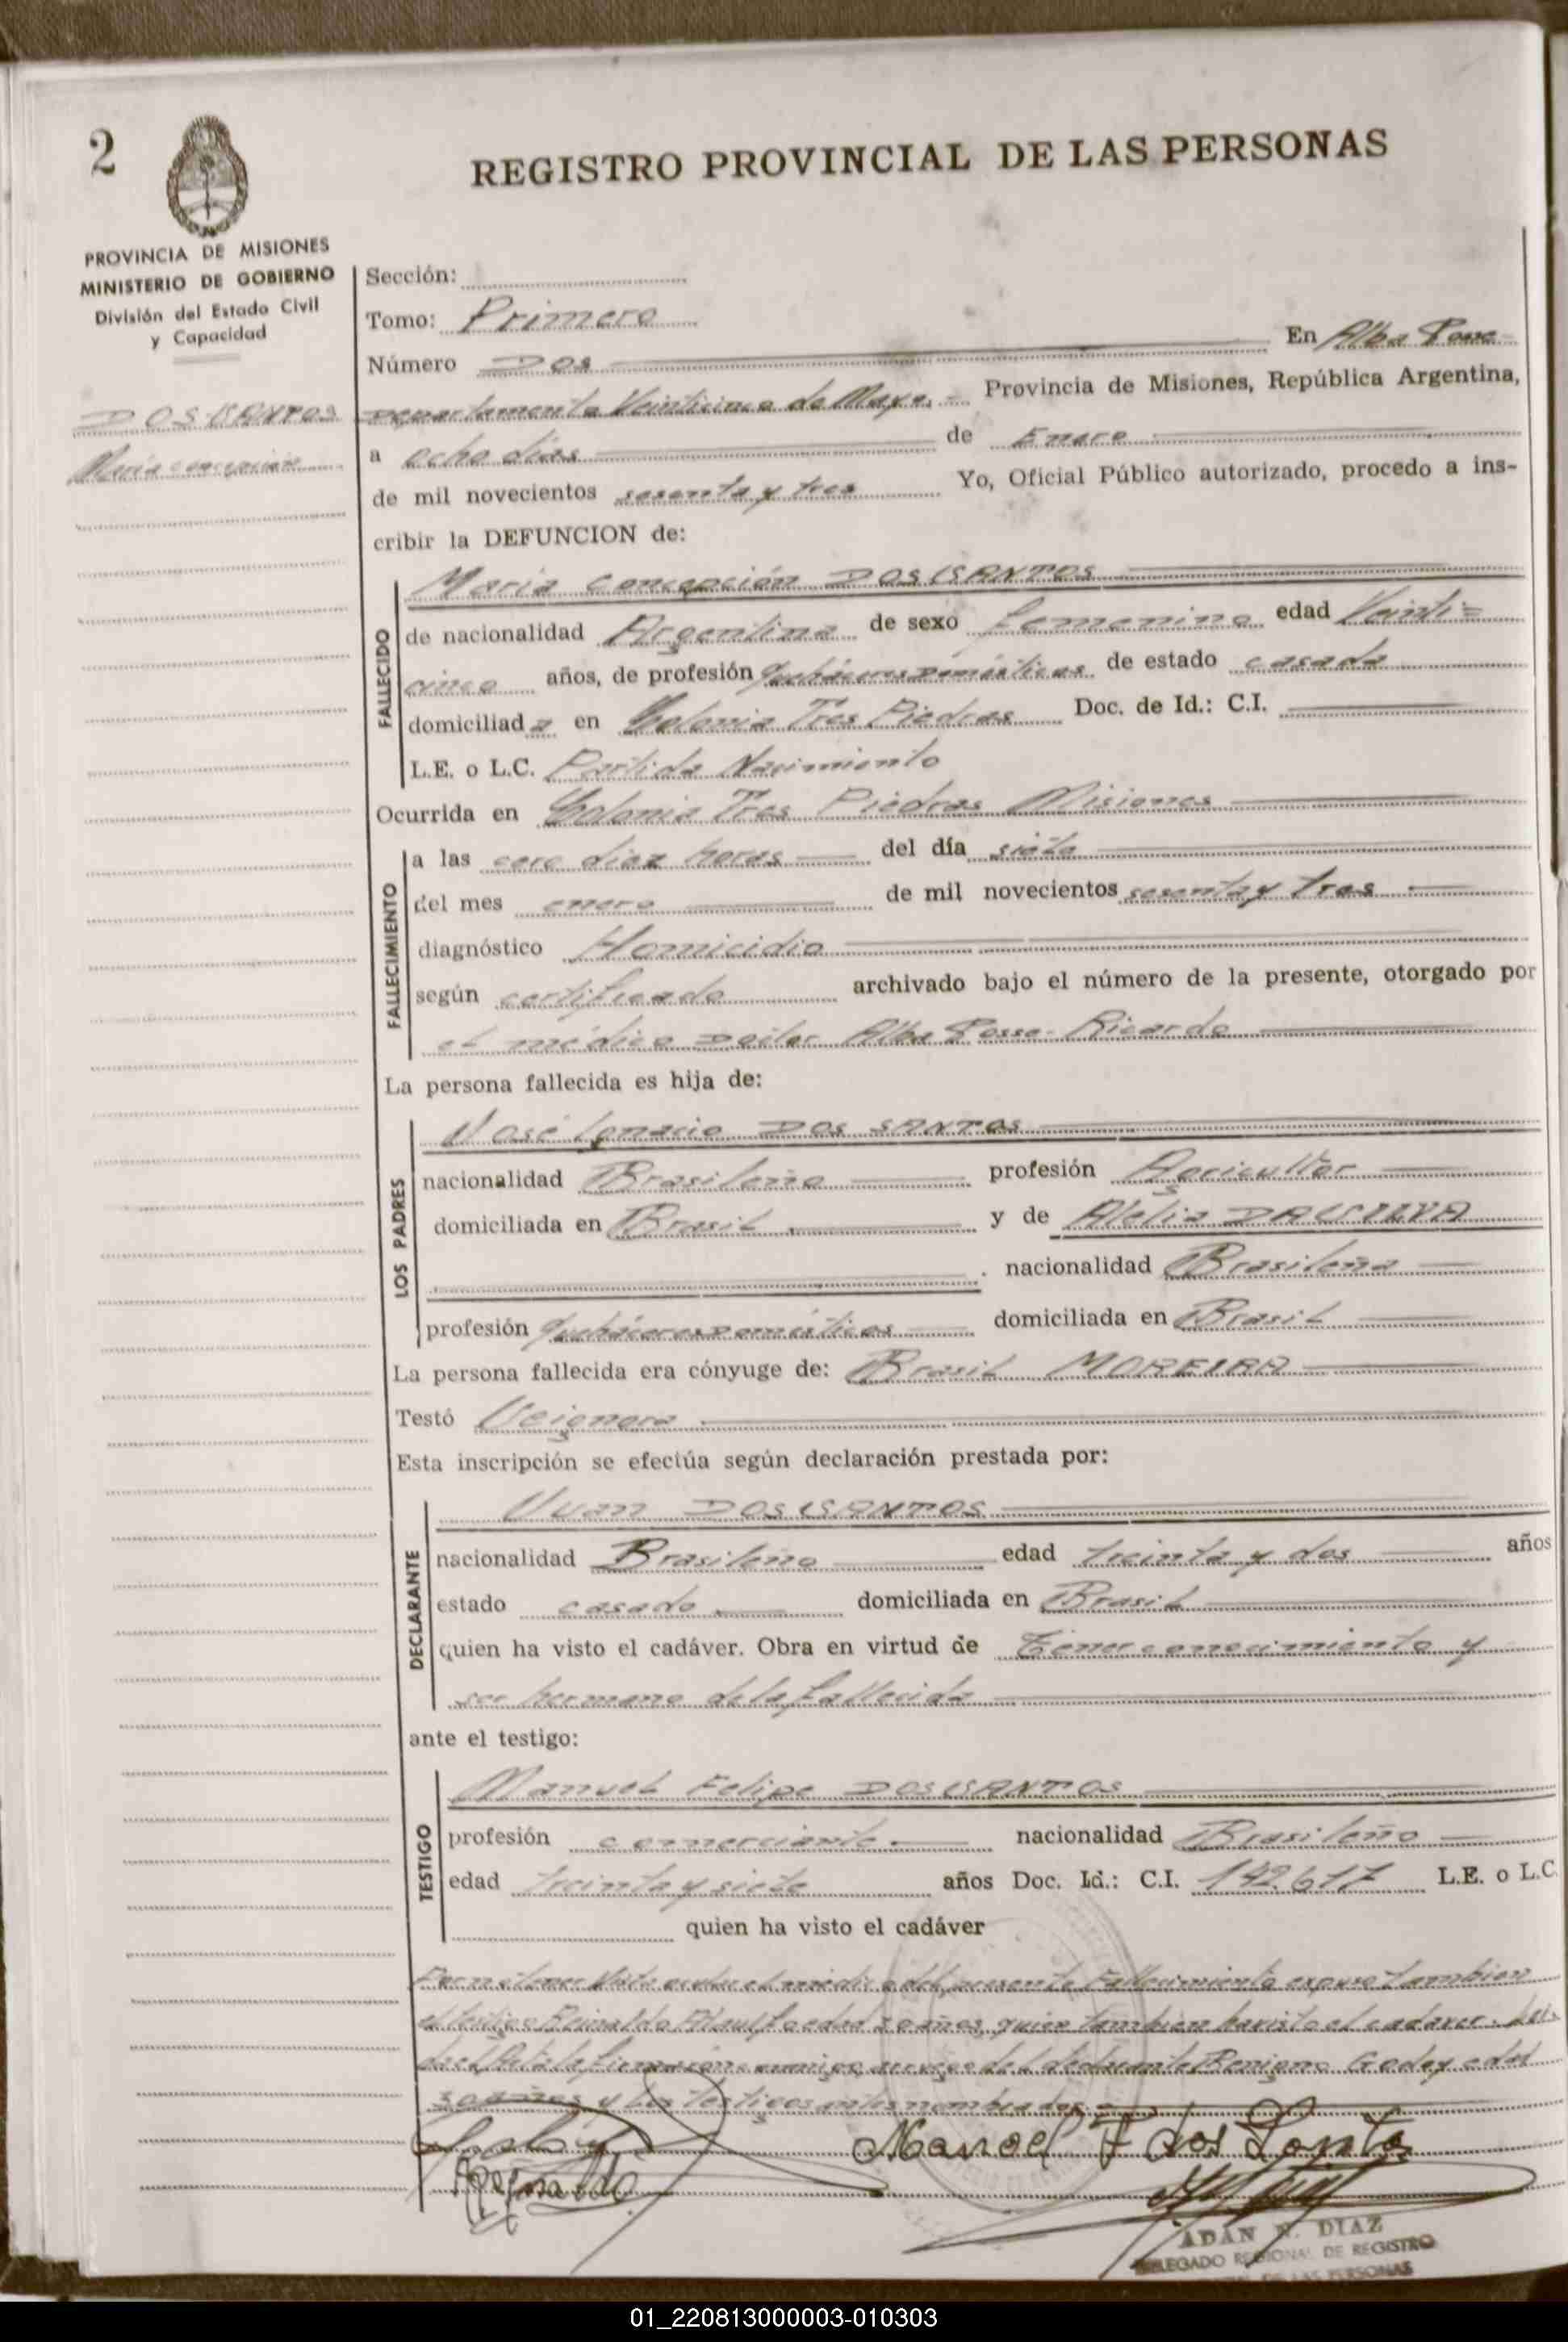 2
REGISTRO PROVINCIAL DE LAS PERSONAS
PROVINCIA DE MISIONES
MINISTERIO DE GOBIERNO
División del Estado Civil
y Capacidad
DOS SANTOS
María concepción
Sección:
Tomo: Primero
Número DOS En Alba Posse
Departamento Veinticinco de Mayo.- Provincia de Misiones, República Argentina,
a ocho días de Enero
de mil novecientos sesenta y tres Yo, Oficial Público autorizado, procedo a ins-
cribir la DEFUNCION de:
FALLECIDO
María Concepción DOS SANTOS
de nacionalidad Argentina de sexo femenino edad Veinti=
cinco años, de profesión Quehaceres Domésticos de estado casada
domiciliad a en Colonia Tres Piedras Doc. de Id.: C.I.
L.E. o L.C. Partida Nacimiento
Ocurrida en Colonia Tres Piedras Misiones
FALLECIMIENTO
a las cero diez horas del día siete
del mes enero de mil novecientos sesenta y tres
diagnóstico Homicidio
según certificado archivado bajo el número de la presente, otorgado por
el médico Alba Posse- Ricardo
La persona fallecida es hija de:
LOS PADRES
José Ignacio DOS SANTOS
nacionalidad Brasileño profesión Agricultor
domiciliada en Brasil y de
nacionalidad Brasileña
profesión Quehaceres Domésticos domiciliada en Brasil
La persona fallecida era cónyuge de: Brasil MOREIRA
Testó
Esta inscripción se efectúa según declaración prestada por:
DECLARANTE
Juan DOS SANTOS
nacionalidad Brasileño edad treinta y dos años
estado casado domiciliada en Brasil
quien ha visto el cadáver. Obra en virtud de Tener conocimiento y
ser hermano de la fallecida
ante el testigo:
TESTIGO
Manuel Felipe DOS SANTOS
profesión comerciante nacionalidad Brasileño
edad treinta y siete años Doc. Id.: C.I. 142.617 L.E. o L.C.
quien ha visto el cadáver
el médico del presente Fallecimiento expuso tambien
el testigo Reinaldo edad años, quien tambien ha visto el cadaver.
del declarante Benigno Godoy edad
años y los testigos antes nombrados
Manoel F dos Santos
Reinaldo
ADAN N. DIAZ
DELEGADO REGIONAL DE REGISTRO
DE LAS PERSONAS
01_220813000003-010303